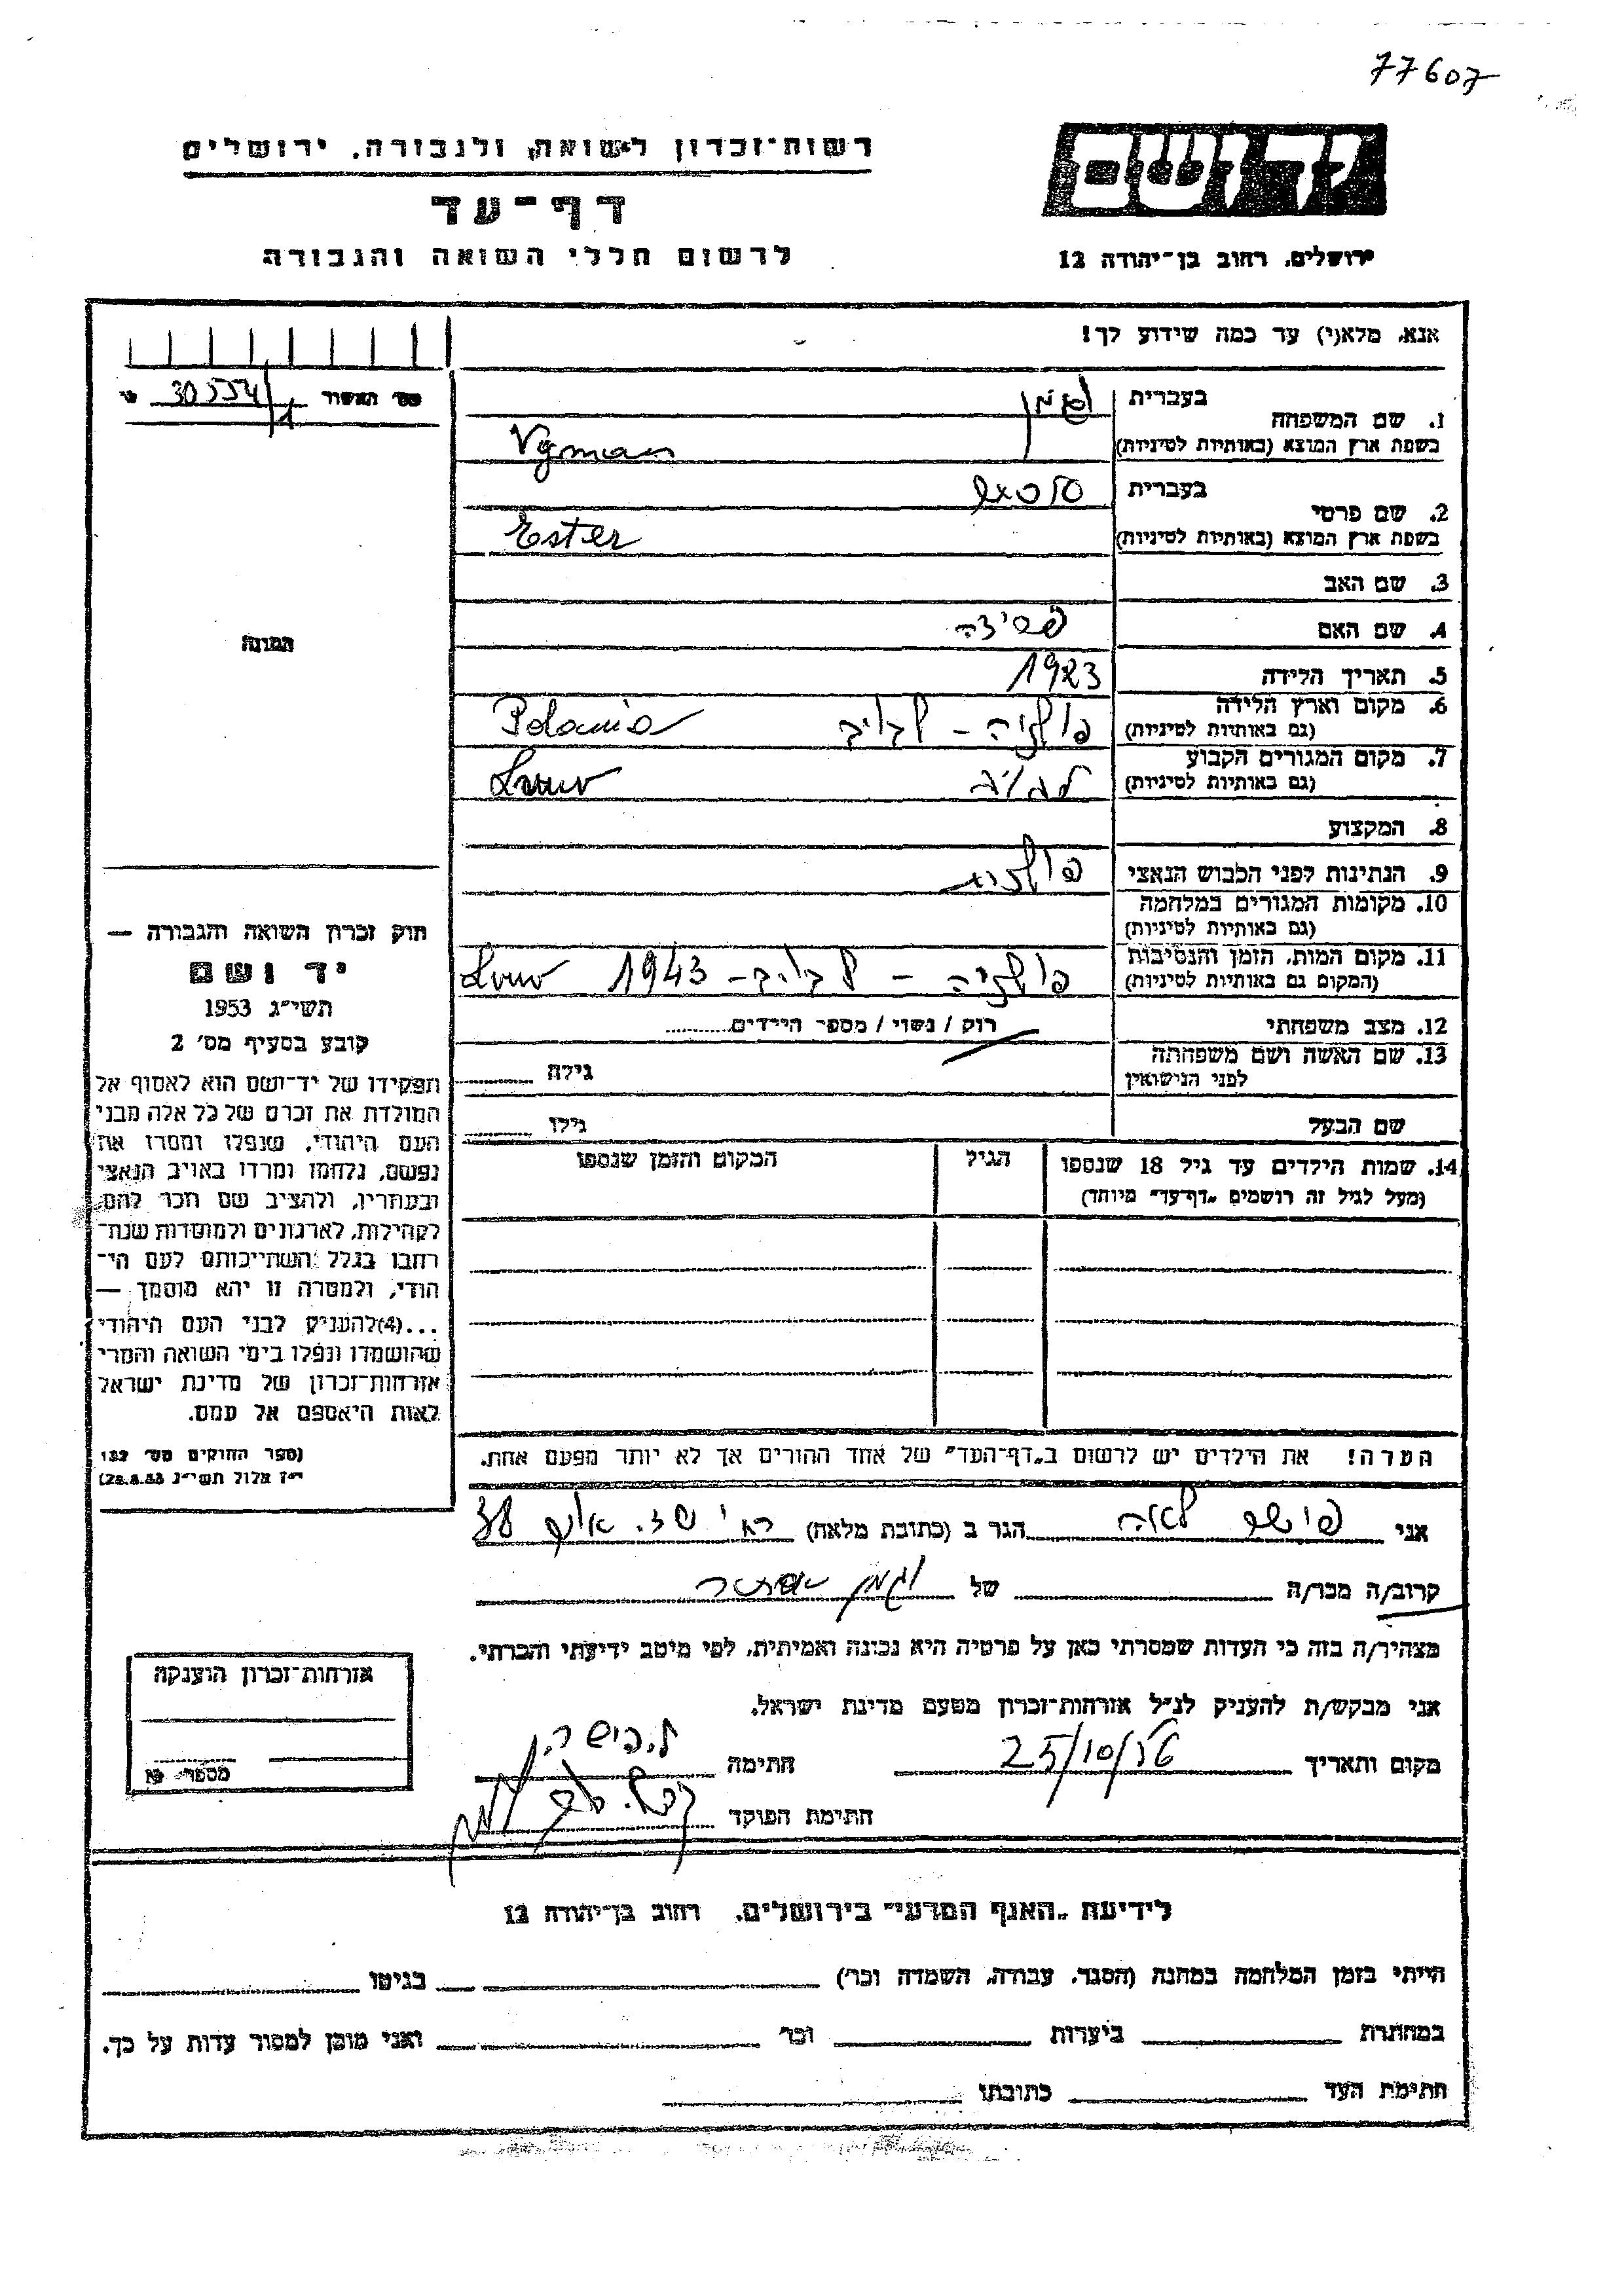 77607
רשות־זכרון לשואה ולגבורה, ירושלים
דף־עד
לרשום חללי השואה והגבורה
יד ושם
ירושלים, רחוב בן־יהודה 12
אנא, מלא(י) עד כמה שידוע לך!
מס׳ האשור
1. שם המשפחה
בעברית
בשפת ארץ המוצא (באותיות לטיניות) Vgman
2. שם פרטי
בעברית
בשפת ארץ המוצא (באותיות לטיניות) Ester
3. שם האב
4. שם האם
5. תאריך הלידה 1923
6. מקום וארץ הלידה
(גם באותיות לטיניות) פולניה - לבוב Polania
7. מקום המגורים הקבוע
(גם באותיות לטיניות) לבוב Lwow
8. המקצוע
9. הנתינות לפני הכבוש הנאצי פולניה
10. מקומות המגורים במלחמה
(גם באותיות לטיניות)
11. מקום המות, הזמן והנסיבות
(המקום גם באותיות לטיניות) פולניה - לבוב - 1943 Lwow
12. מצב משפחתי רוק / נשוי / מספר הילדים
13. שם האשה ושם משפחתה
לפני הנישואין גילה
שם הבעל גילו
14. שמות הילדים עד גיל 18 שנספו
(מעל לגיל זה רושמים „דף־עד" מיוחד)
הגיל
המקום והזמן שנספו
הערה! את הילדים יש לרשום ב„דף־העד" של אחד ההורים אך לא יותר מפעם אחת.
התמונה
חוק זכרון השואה והגבורה —
יד ושם
תשי״ג 1953
קובע בסעיף מס׳ 2
תפקידו של יד־ושם הוא לאסוף אל
המולדת את זכרם של כל אלה מבני
העם היהודי, שנפלו ומסרו את
נפשם, נלחמו ומרדו באויב הנאצי
ובעוזריו, ולהציב שם וזכר להם,
לקהילות, לארגונים ולמוסדות שנח־
רבו בגלל השתייכותם לעם הי־
הודי, ולמטרה זו יהא מוסמך —
...(4)להעניק לבני העם היהודי
שהושמדו ונפלו בימי השואה והמרי
אזרחות־זכרון של מדינת ישראל
לאות היאספם אל עמם.
(ספר החוקים מס׳ 132
י״ז אלול תשי״ג 28.8.53)
אני לאה הגר ב (כתובת מלאה)
קרוב/ה מכר/ה של וגמן אסתר
מצהיר/ה בזה כי העדות שמסרתי כאן על פרטיה היא נכונה ואמיתית, לפי מיטב ידיעתי והכרתי.
אני מבקש/ת להעניק לנ״ל אזרחות־זכרון מטעם מדינת ישראל.
מקום ותאריך 25/10/56 חתימה
חתימת הפוקד
אזרחות־זכרון הוענקה
מספר
לידיעת „האגף המדעי" בירושלים, רחוב בן־יהודה 12
הייתי בזמן המלחמה במחנה (הסגר, עבודה, השמדה וכו׳) בגיטו
במחתרת ביערות וכו׳ ואני מוכן למסור עדות על כך.
חתימת העד כתובתו